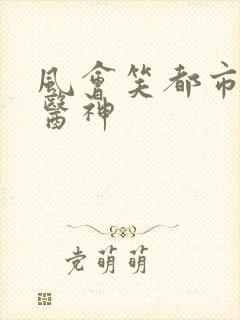 風會笑都市
醫神
党萌萌